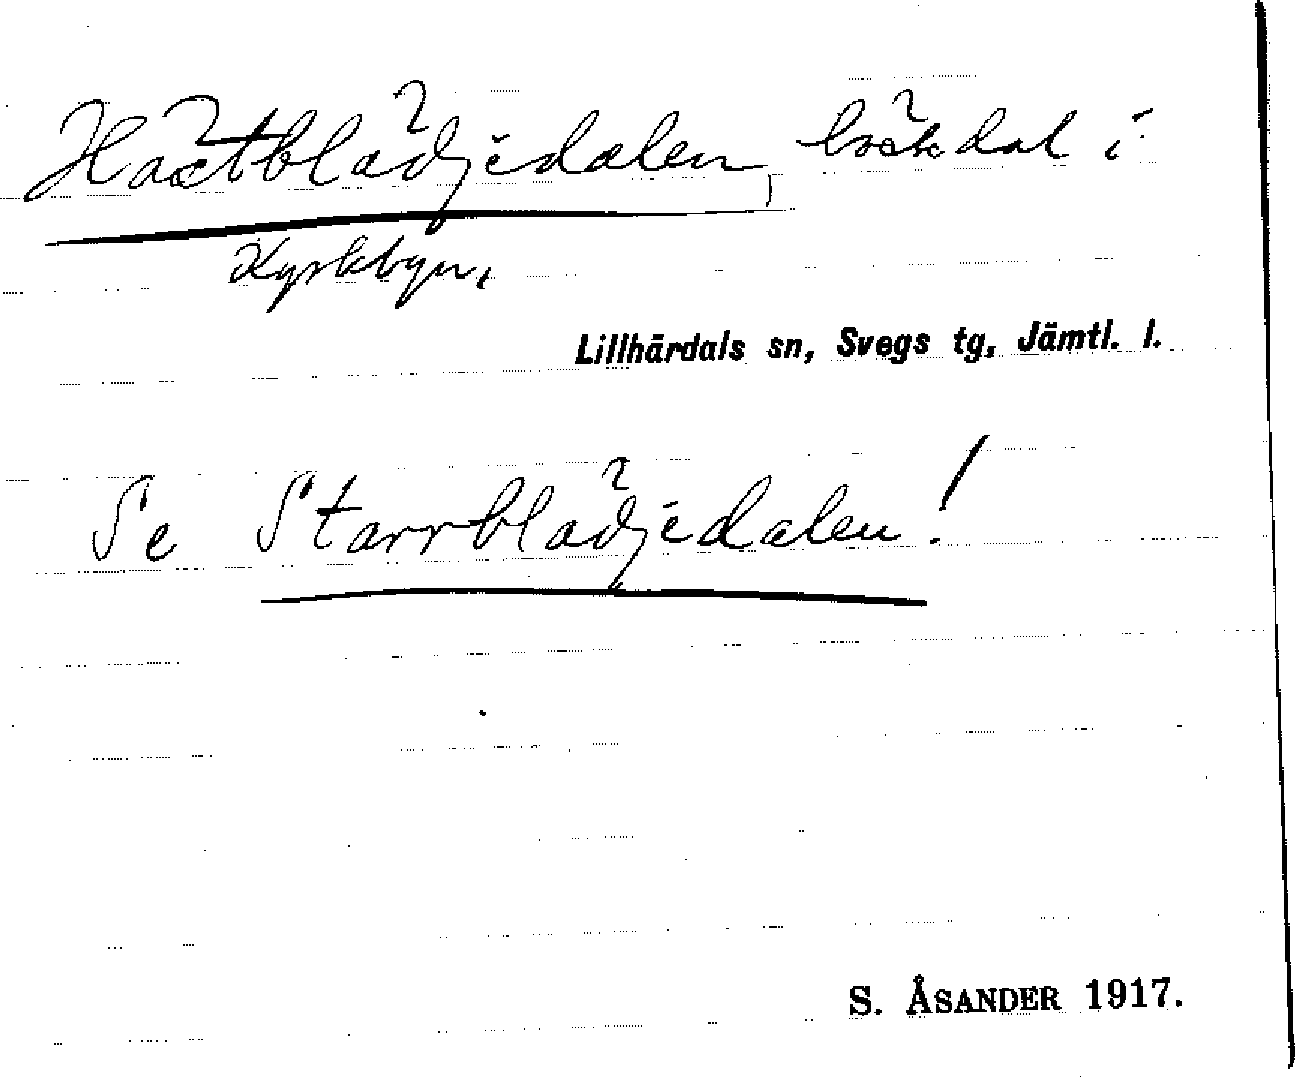 Haatblädjedalen, bäckdal i
Kyrkbyn,
Lillhärdals sn, Svegs tg, Jämtl. l.
Se Starrblädjedalen!
S. ÅSANDER 1917.